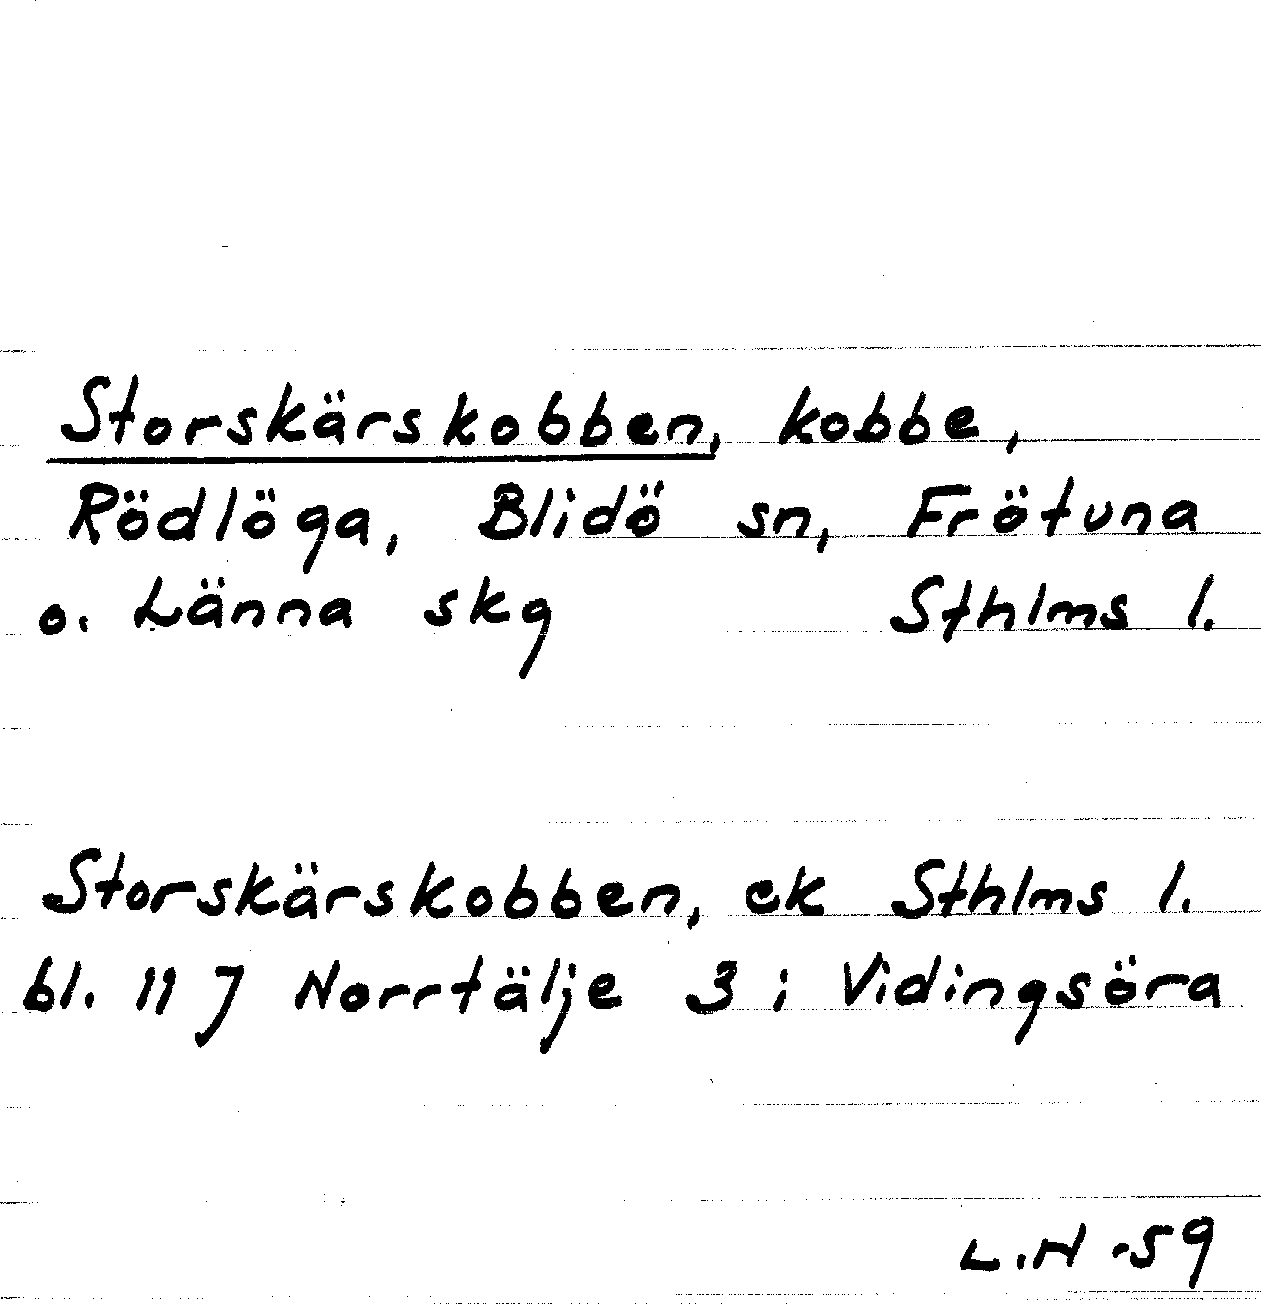 Storskärskobben, kobbe,
Rödlöga, Blidö sn, Frötuna
o. Länna skg Sthlms l.
Storskärskobben, ek Sthlms l.
bl. 11 J Norrtälje 3 i Vidingsöra
L.H -59